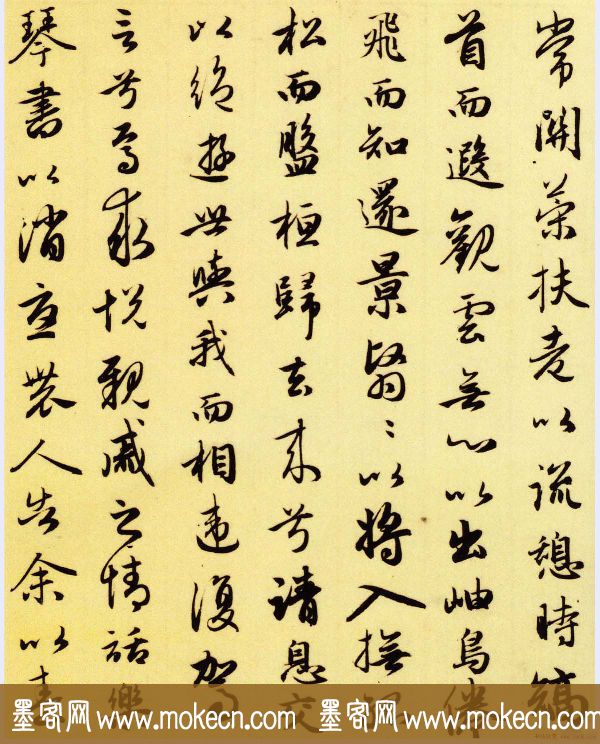 常關策扶老以流憩時矯
首而遐觀雲無心以出岫鳥倦
飛而知還景翳〻以將入撫孤
松而盤桓歸去來兮請息交
以絕遊世與我而相違復駕
言兮焉求悅親戚之情話樂
琴書以消憂農人告余以春
墨客网 www.mokecn.com 墨客网 www.mokecn.com